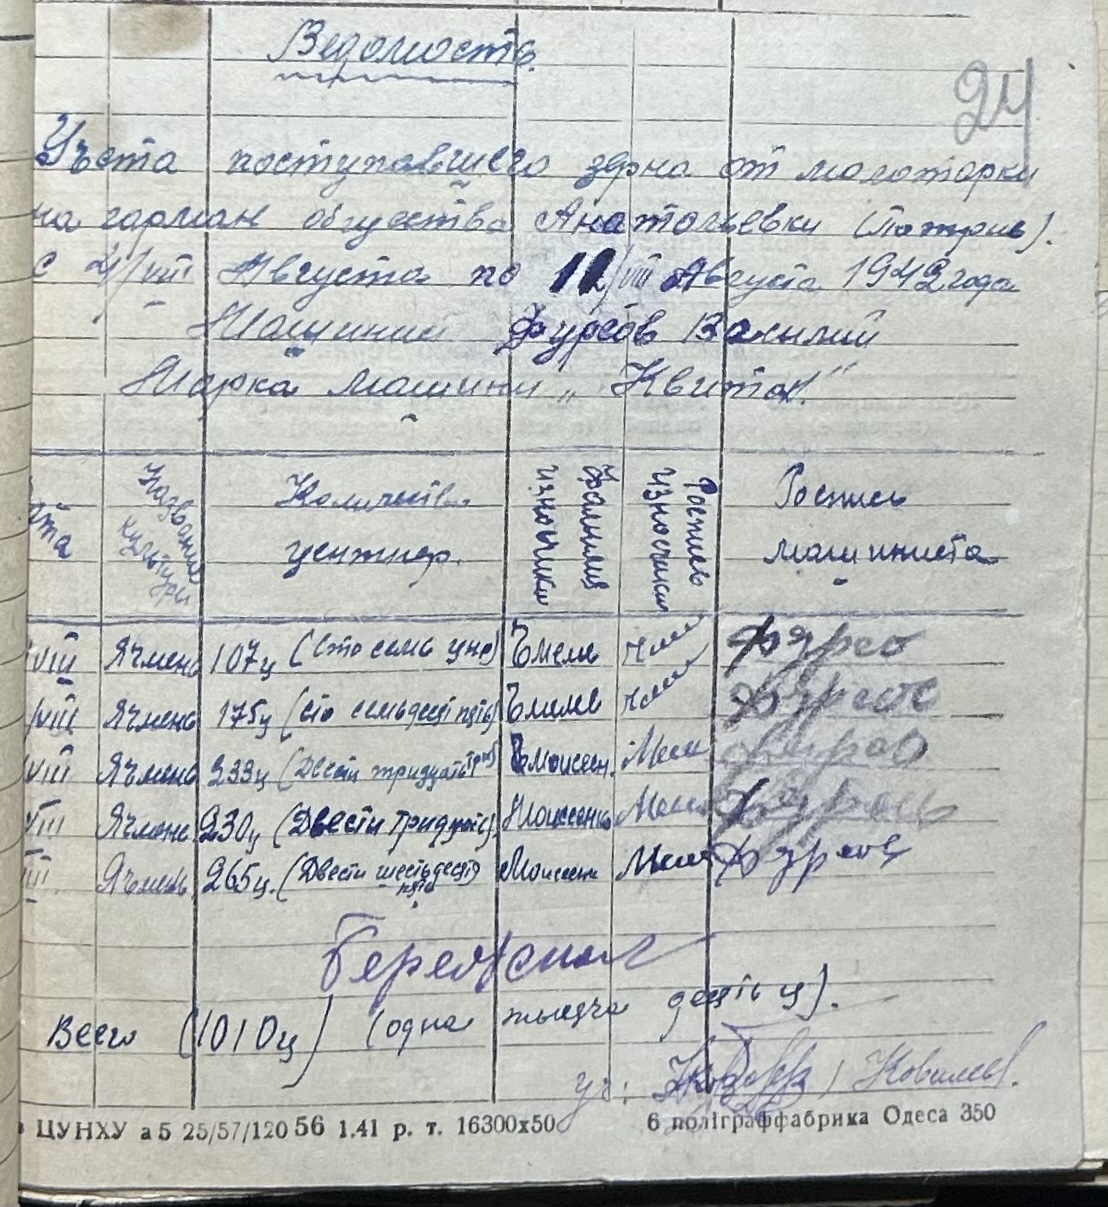 Ведомость.
24
Учота поступавшего зерна от молотарки
на гарман общества Анатольевки
с 4/VIII Августа по 11/VIII Августа 1942 года
Машинист Фурсов Василий
Марка машины
Название культуры
Количество центнер.
Фамилия
Роспись
Роспись машиниста
VIII Ячмень 107ц (сто семь цнр)
VIII Ячмень 175ц (сто семьдесят пять)
VIII Ячмень 233ц (Двести тридцать три) Моисеен.
VIII Ячмень 230ц (Двести тридцать) Моисеенко
III. Ячмень 265ц. (Двести шестьдесят пять) Моисеен
Всего (1010ц) (одна тысяча десять ц).
уч: / Ковалев.
ЦУНХУ а5 25/57/120 56 1.41 р. т. 16300х50 6 поліграффабрика Одеса 350